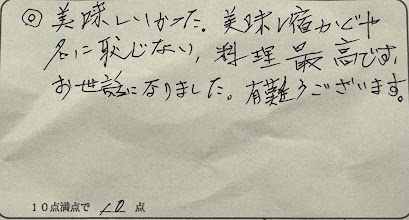 ◎ 美味しいかった。美味し宿かどや
名に恥じない、料理最高です。
お世話になりました。有難うございます。
10点満点で 10 点